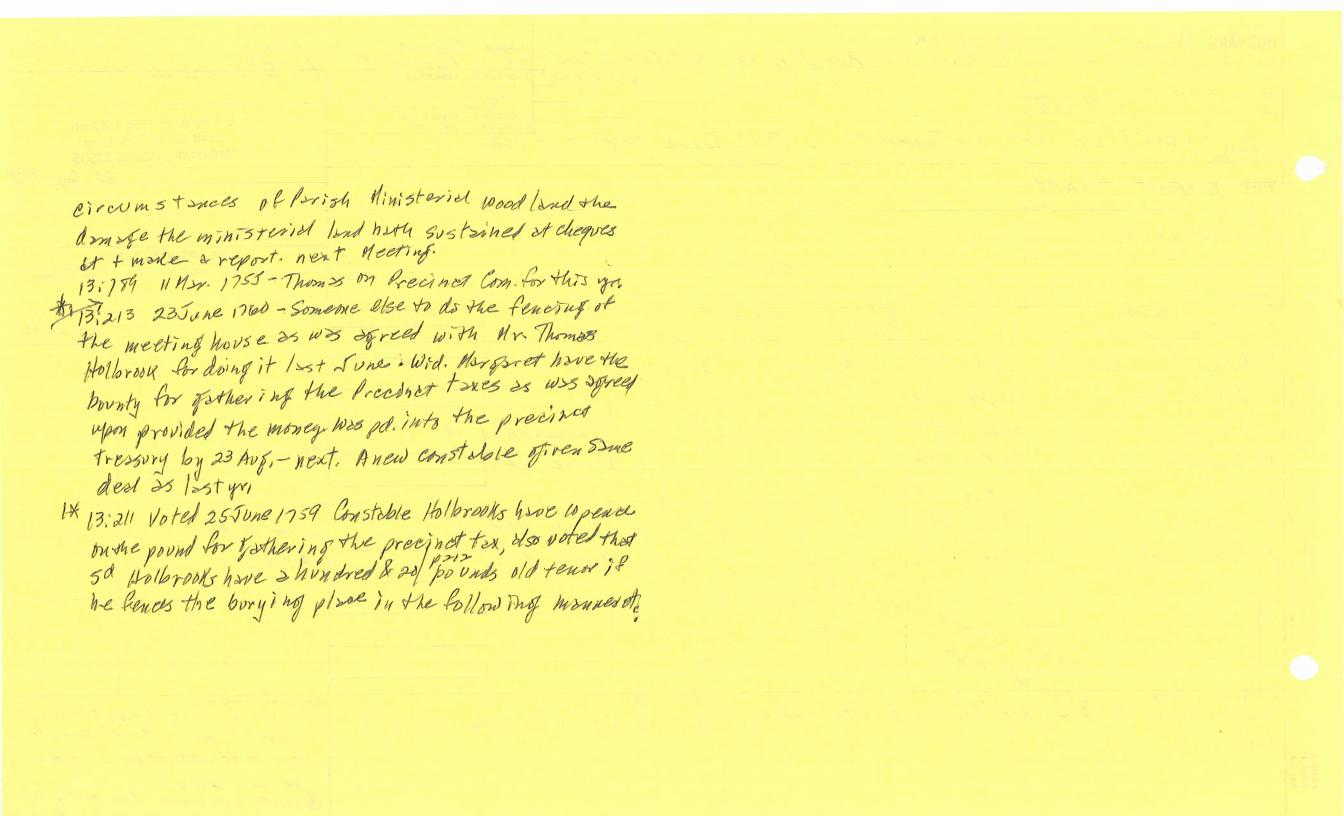 circumstances of Parish Ministerial wood land the
damage the ministerial land hath sustained at cheques
et + make a report. next Meeting.
13:189 11 Mar. 1755 - Thomas on Precinct Com. for this yr.
13:213 23 June 1760 - Someone else to do the fencing of
the meeting house as was agreed with Mr. Thomas
Holbrook for doing it last June. Wid. Margaret have the
bounty for gathering the Precinct taxes as was agreed
upon provided the money was pd. into the precinct
treasury by 23 Aug. - next. A new constable given same
deal as last yr.
1* 13:211 Voted 25 June 1759 Constable Holbrooks have 10 pence
on the pound for gathering the precinct tax, also voted that
sd Holbrooks have a hundred & 20/ p212 pounds old tenor if
he fences the burying place in the following manner etc.